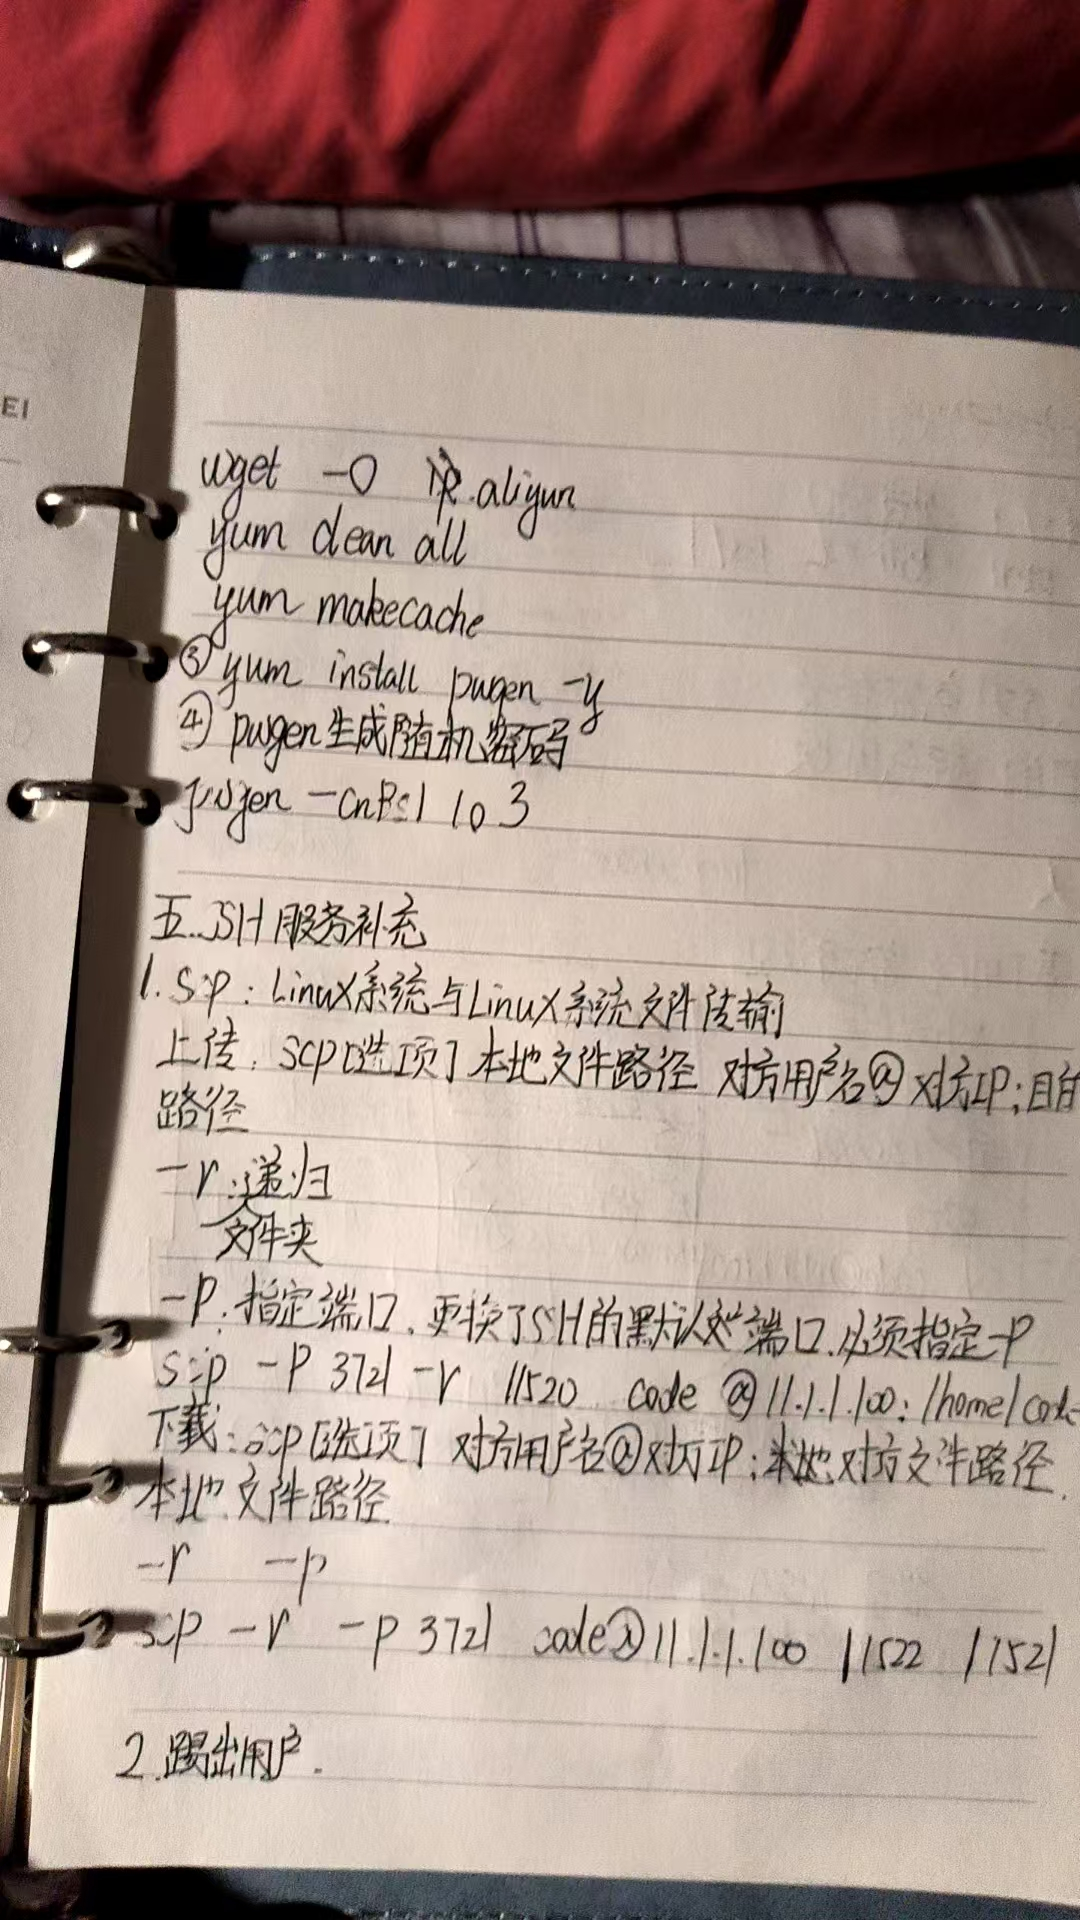 EI
wget -O .aliyun
yum clean all
yum makecache
③yum install pwgen -y
④pwgen生成随机密码
pwgen -cnBs1 10 3
五.SSH服务补充
1.scp：Linux系统与Linux系统文件传输
上传：scp[选项] 本地文件路径 对方用户名@对方IP:目的
路径
-r：递归
文件夹
-P：指定端口，更换了SSH的默认端口，必须指定-P
scp -P 3721 -r 11520 code@11.1.1.100:/home/code
下载：scp[选项] 对方用户名@对方IP:对方文件路径
本地文件路径
-r -p
scp -r -p 3721 code@11.1.1.100 11522 11521
2.踢出用户.